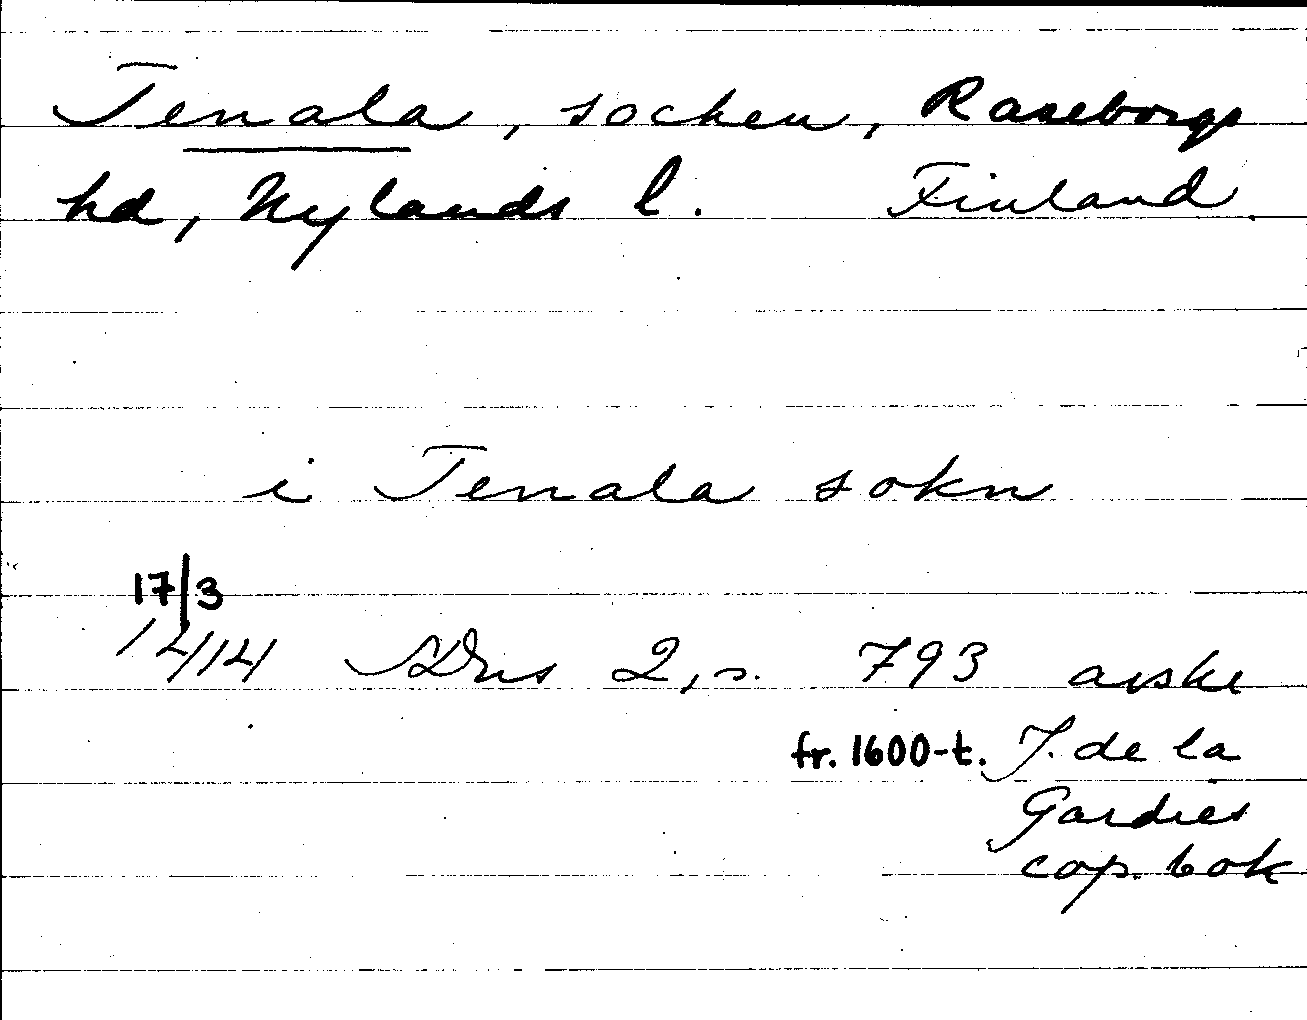 Tenala, socken, Raseborgs
hd, Nylands l. Finland.
i Tenala sokn
17/3
1414 SDns 2, s. 793 avskr
fr. 1600-t. J. de la
Gardies
cop. bok